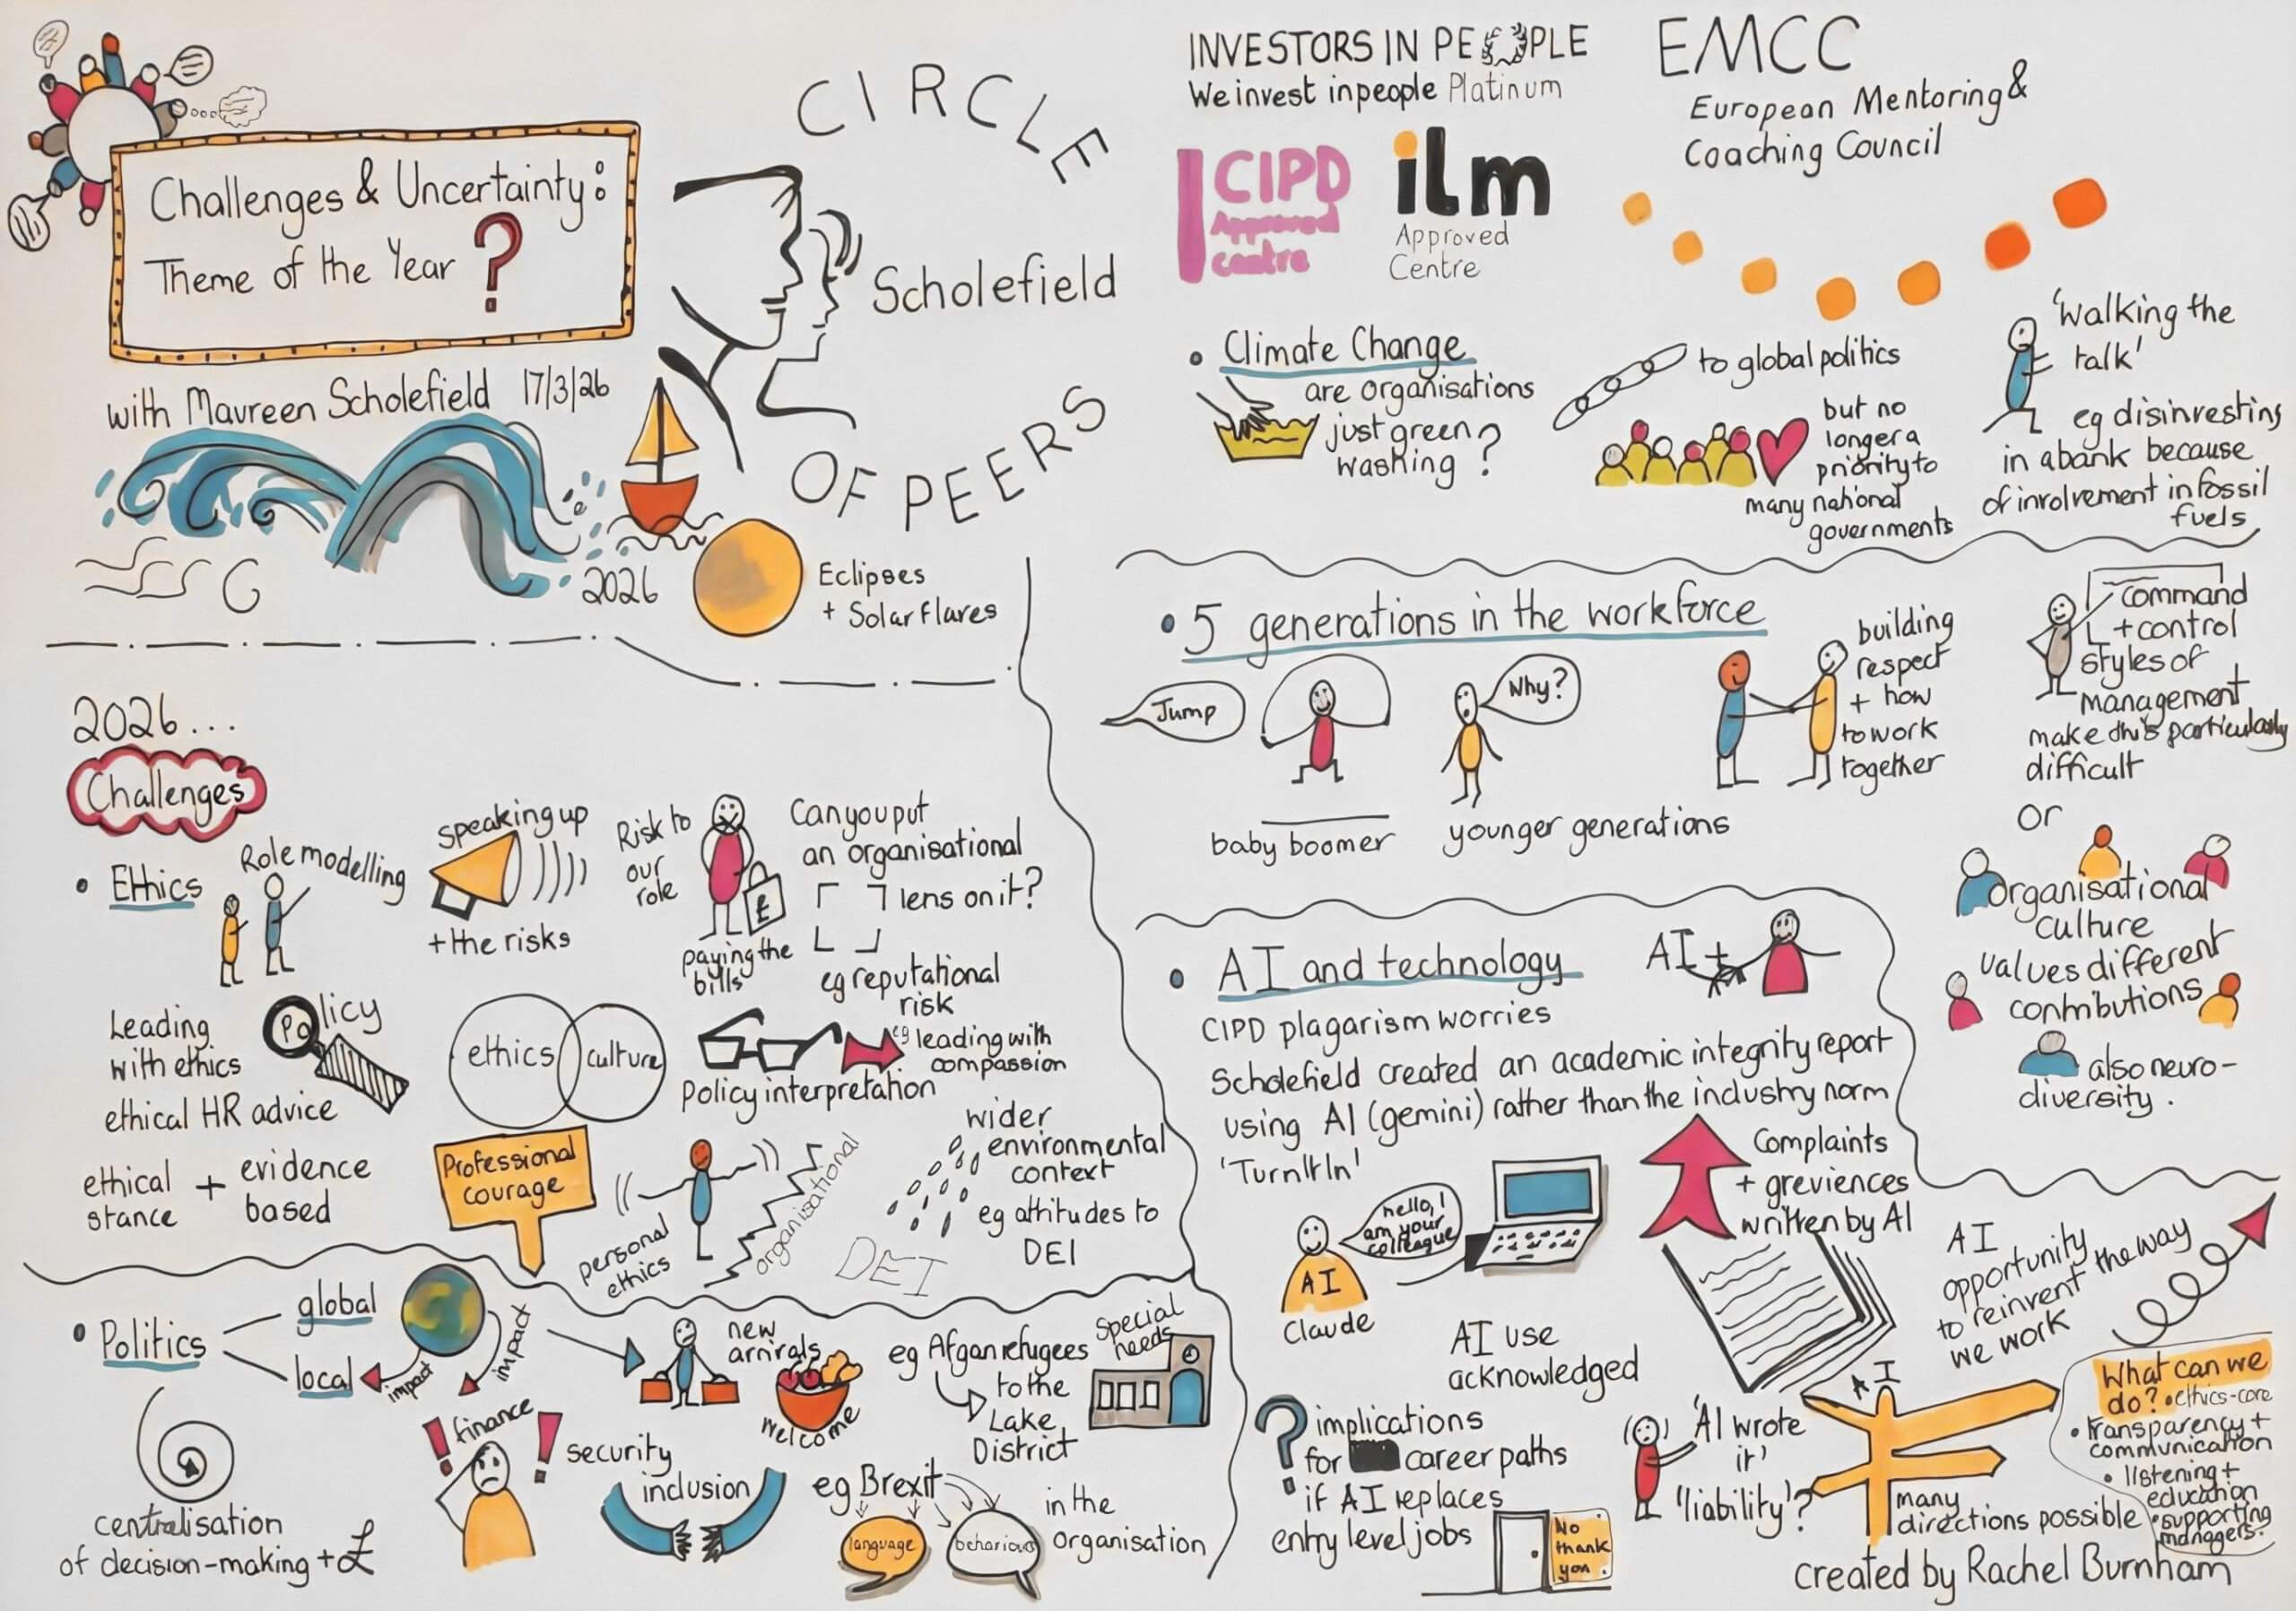 Challenges & Uncertainty:
Theme of the Year ?
with Maureen Scholefield 17/3/26
2026
Eclipses
+ Solar flares
CIRCLE
Scholefield
OF PEERS
INVESTORS IN PEOPLE
We invest in people Platinum
CIPD
Approved
centre
ilm
Approved
Centre
EMCC
European Mentoring &
Coaching Council
• Climate Change
are organisations
just green
washing ?
to global politics
but no
longer a
priority to
many national
governments
'walking the
talk'
eg disinvesting
in a bank because
of involvement in fossil
fuels
• 5 generations in the workforce
Jump
Why?
baby boomer
younger generations
building
respect
+ how
to work
together
command
+ control
styles of
management
make this particularly
difficult
or
organisational
culture
values different
contributions
also neuro-
diversity.
2026...
Challenges
• Ethics
Role modelling
speaking up
+ the risks
Risk to
our
role
£
paying the
bills
Can you put
an organisational
lens on it?
eg reputational
risk
Leading
with ethics
Policy
ethical HR advice
ethics
culture
eg leading with
compassion
Policy interpretation
ethical
stance
+
evidence
based
Professional
courage
personal
ethics
organisational
wider
environmental
context
eg attitudes to
DEI
DEI
• Politics
global
local
impact
impact
new
arrivals
welcome
eg Afgan refugees
to the
Lake
District
Special
needs
centralisation
of decision-making + £
! finance !
security
inclusion
eg Brexit
language
behaviours
in the
organisation
• AI and technology
AI +
CIPD plagarism worries
Scholefield created an academic integrity report
using AI (gemini) rather than the industry norm
'TurnItIn'
hello, I
am your
colleague
AI
Claude
Complaints
+ greviences
written by AI
AI
opportunity
to reinvent the way
we work
AI use
acknowledged
? implications
for career paths
if AI replaces
entry level jobs
No
thank
you
'AI wrote
it'
'liability'?
AI
many
directions possible
What can we
do? • ethics-core
• transparency +
communication
• listening +
education
• supporting
managers.
created by Rachel Burnham